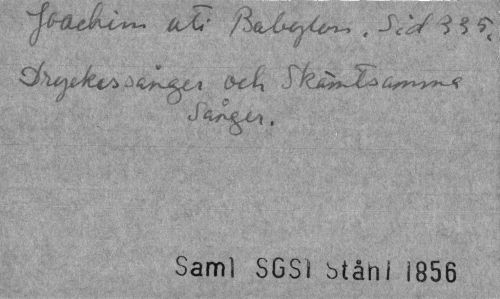 Joachim uti Babylon. Sid 335.
Dryckessånger och Skämtsamma
Sånger.
Saml SGS1 Stånl 1856